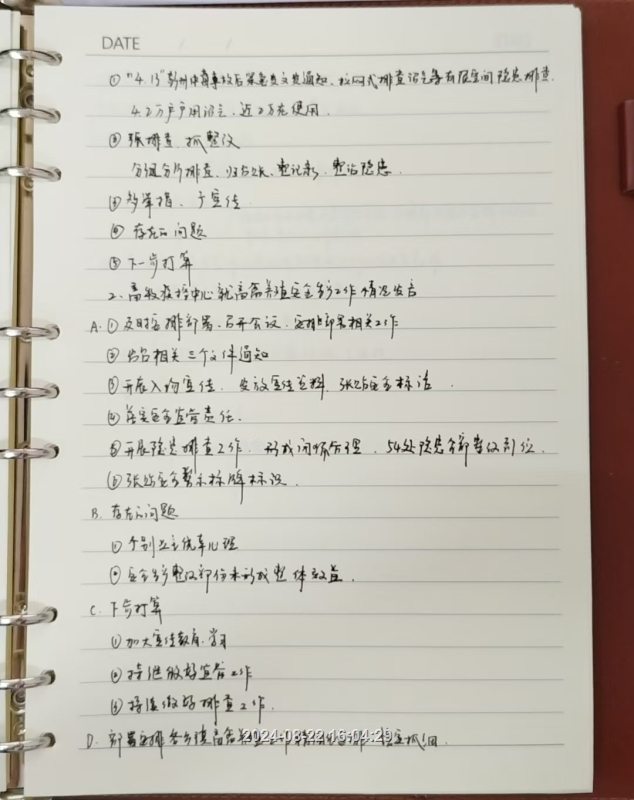 DATE / /
① "4.13" 彭州中毒事故后 发文发通知、拉网式排查沼气等有限空间隐患排查.
4.2万户户用沼气、近2万在使用.
② 强排查、抓整改
分组分片排查、归台账、重记录、整治隐患
③ 多举措、广宣传
④ 存在的问题
⑤ 下一步打算
2. 畜牧疫控中心就畜禽养殖安全生产工作情况发言
A. ① 及时安排部署、召开会议、安排部署相关工作
② 出台相关三个文件通知
③ 开展入场宣传、发放宣传资料、张贴安全标语.
④ 落实安全监管责任.
⑤ 开展隐患排查工作、形成闭循管理、54处隐患全部整改到位.
⑥ 张贴安全警示标牌标识.
B. 存在的问题
① 个别业主侥幸心理
② 安全生产整改部份未形成整体效益.
C. 下步打算
① 加大宣传教育、学习
② 持续做好监管工作
③ 持续做好排查工作.
D. 部署安排各乡镇畜禽养殖
2024-08-22 16:04:29